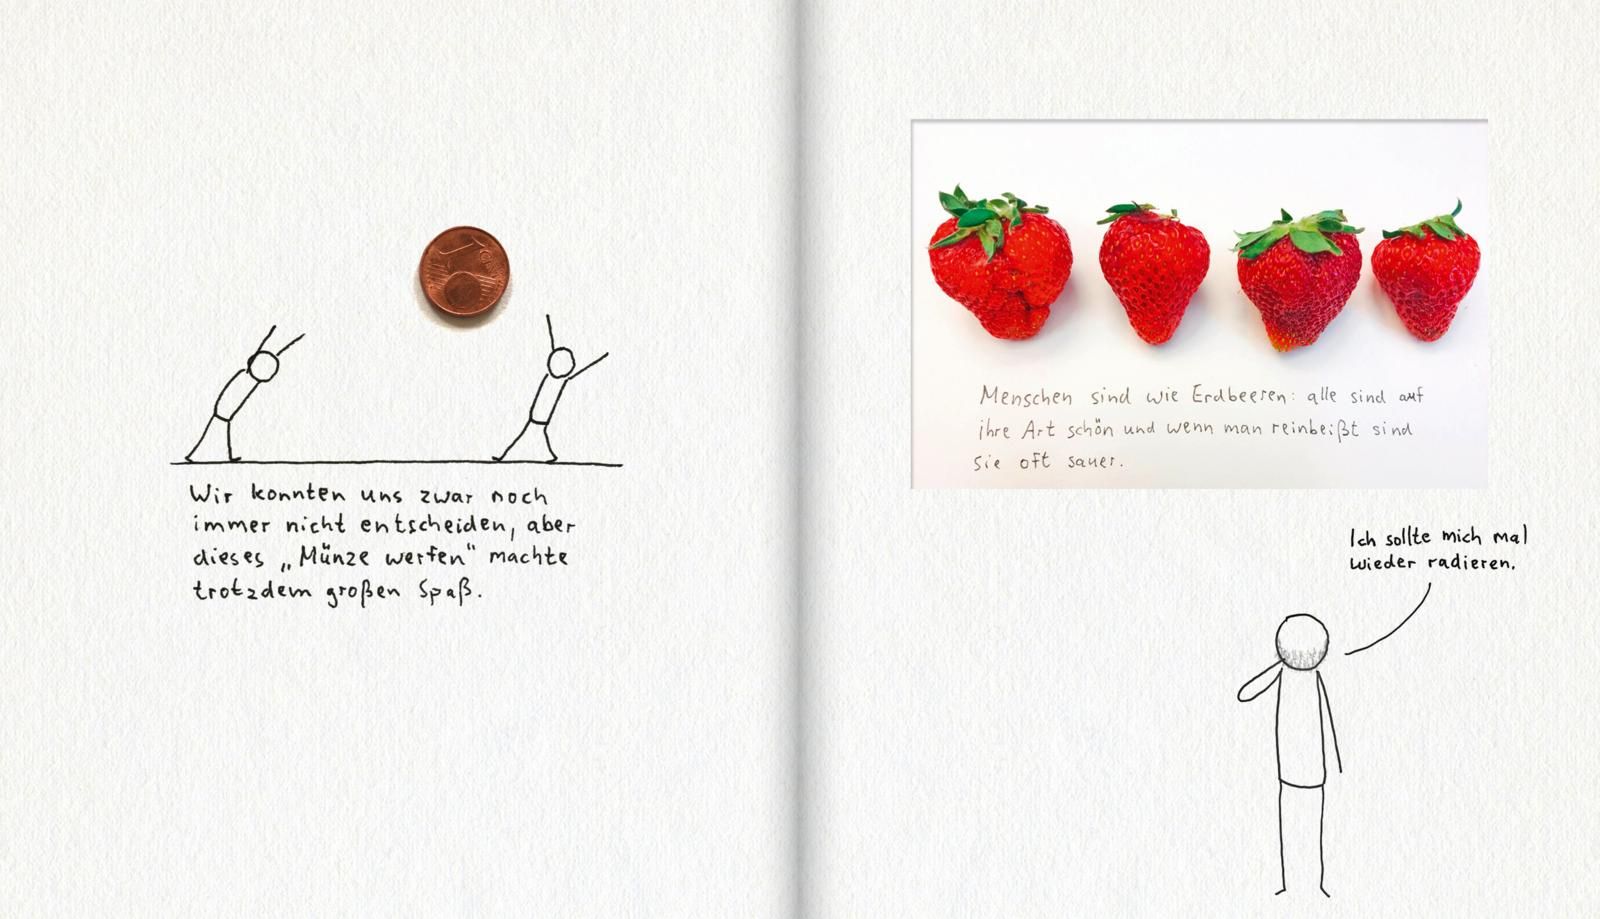 Wir konnten uns zwar noch
immer nicht entscheiden, aber
dieses „Münze werfen“ machte
trotzdem großen Spaß.
Menschen sind wie Erdbeeren: alle sind auf
ihre Art schön und wenn man reinbeißt sind
sie oft sauer.
Ich sollte mich mal
wieder radieren.